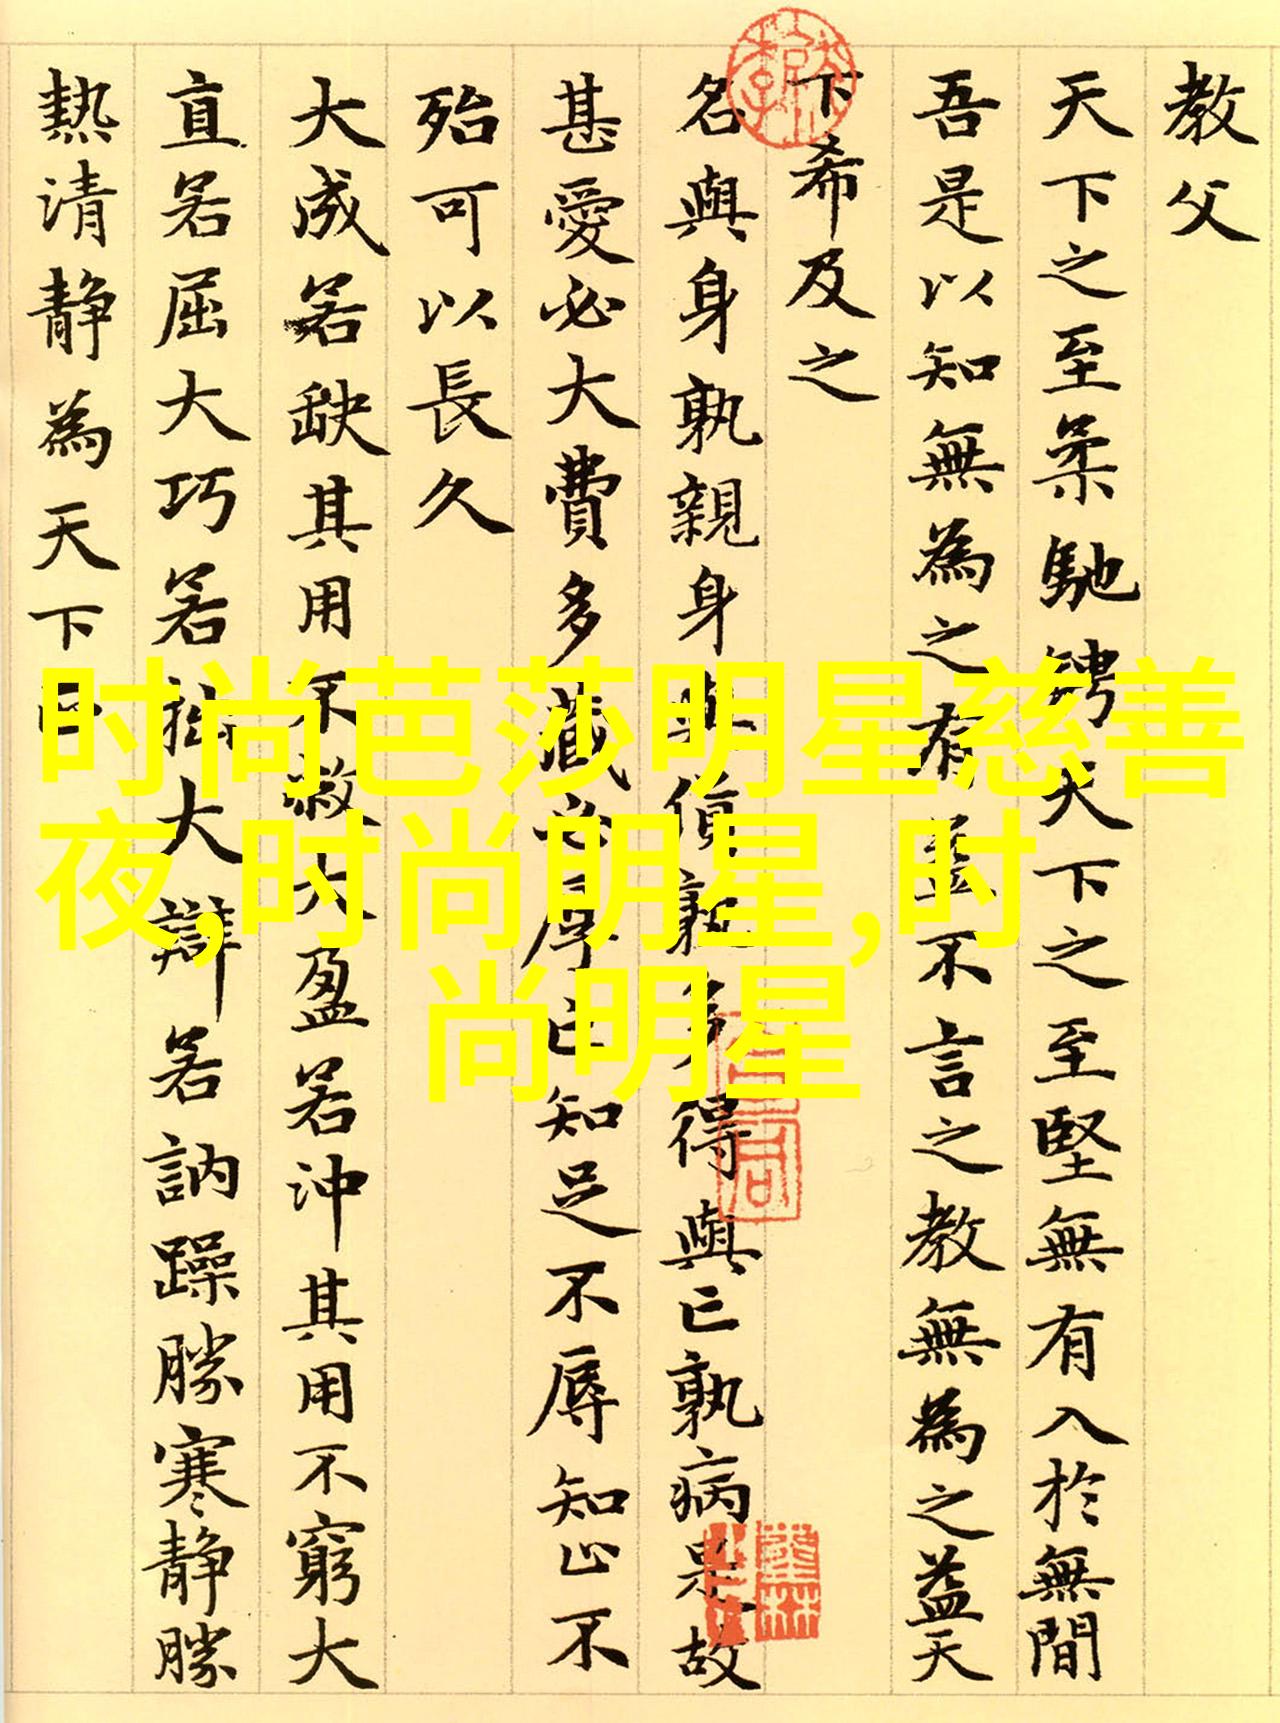 教父
天下之至柔馳騁天下之至堅無有入於無間
吾是以知無為之有益不言之教無為之益天
下希及之
名與身孰親身與貨孰多得與亡孰病是故
甚愛必大費多藏必厚亡知足不辱知止不
殆可以長久
大成若缺其用不敝大盈若沖其用不窮大
直若屈大巧若拙大辯若訥躁勝寒靜勝
熱清靜為天下正
时尚芭莎明星慈善
夜,时尚明星,时
尚明星